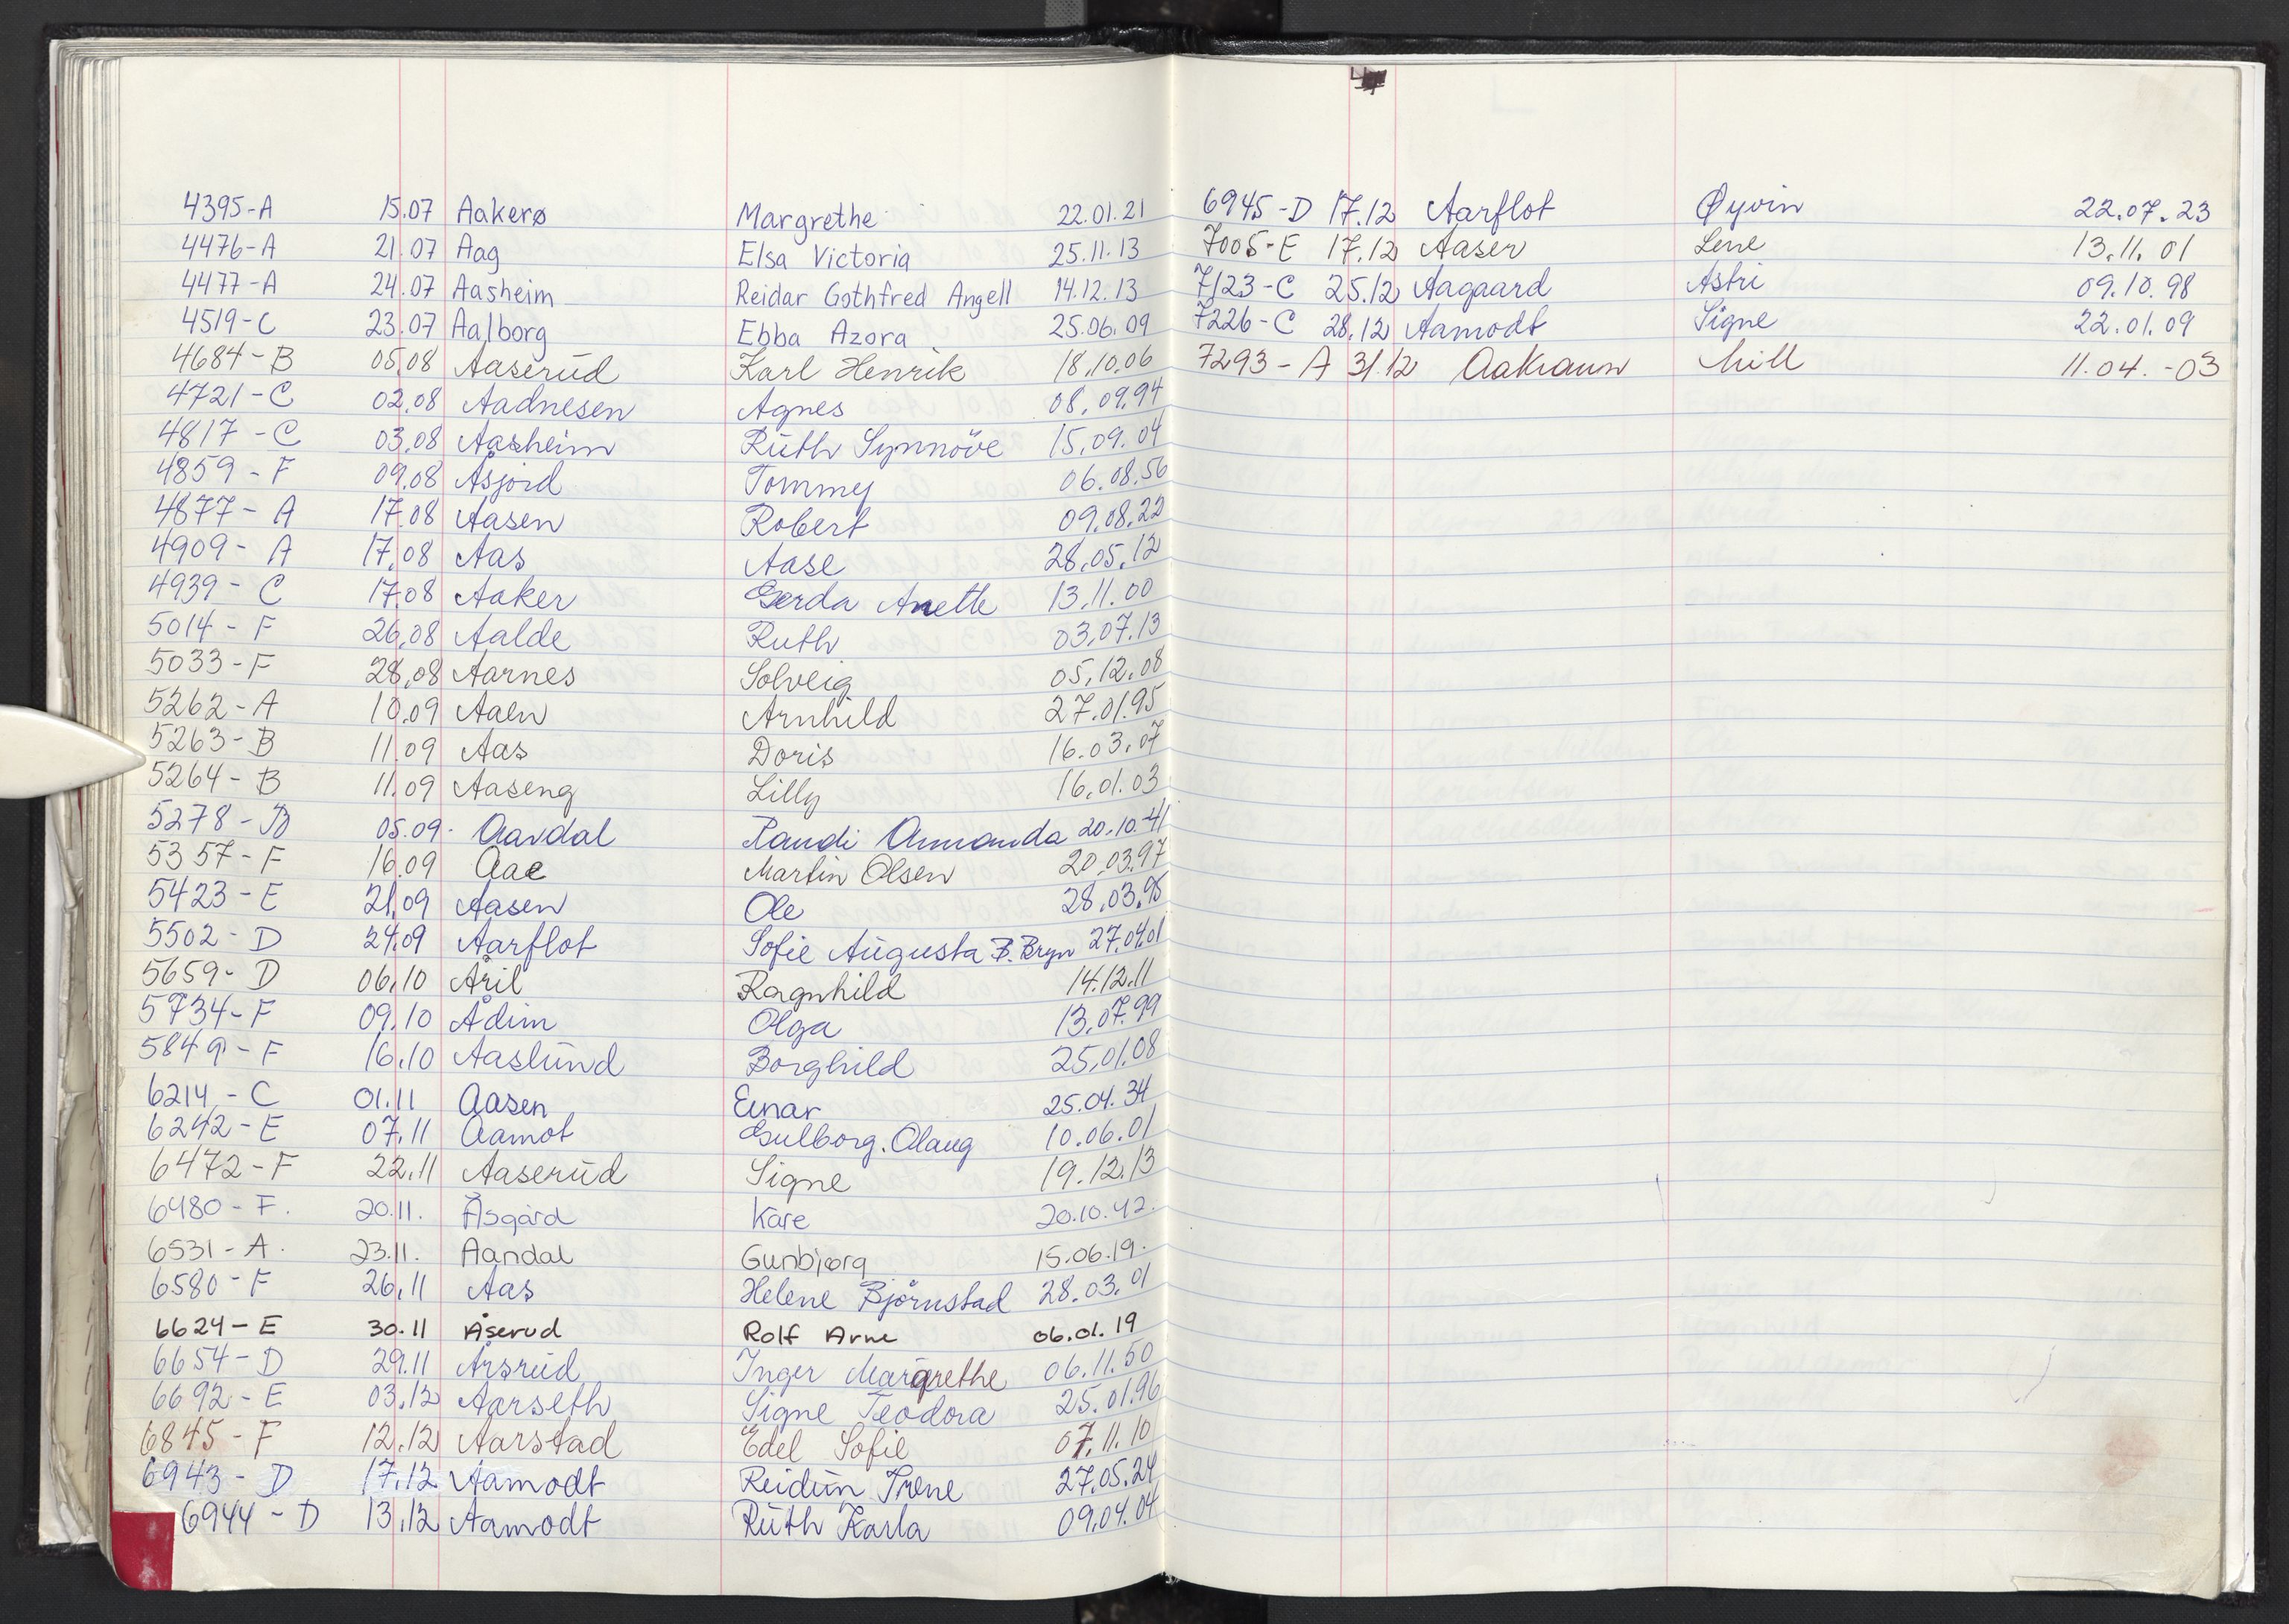 4395-A 15.07 Aakerø Margrethe 22.01.21
4476-A 21.07 Aag Elsa Victoria 25.11.13
4477-A 24.07 Aasheim Reidar Gothfred Angell 14.12.13
4519-C 23.07 Aalborg Ebba Azora 25.06.09
4684-B 05.08 Aaserud Karl Henrik 18.10.06
4721-C 02.08 Aadnesen Agnes 08.09.94
4817-C 03.08 Aasheim Ruth Synnöve 15.09.04
4859-F 09.08 Åsjord Tommy 06.08.56
4877-A 17.08 Aasen Robert 09.08.22
4909-A 17.08 Aas Aase 28.05.12
4939-C 17.08 Aaker Gerda Anette 13.11.00
5014-F 26.08 Aalde Ruth 03.07.13
5033-F 28.08 Aarnes Solveig 05.12.08
5262-A 10.09 Aaen Arnhild 27.01.95
5263-B 11.09 Aas Doris 16.03.07
5264-B 11.09 Aaseng Lilly 16.01.03
5278-B 05.09. Aardal Randi Ammanda 20.10.41
5357-F 16.09 Aae Martin Olsen 20.03.97
5423-E 21.09 Aasen Ole 28.03.95
5502-D 24.09 Aarflot Sofie Augusta B. Bryn 27.04.01
5659-D 06.10 Åril Ragnhild 14.12.11
5734-F 09.10 Ådim Olga 13.07.99
5849-F 16.10 Aaslund Borghild 25.01.08
6214-C 01.11 Aasen Einar 25.04.34
6242-E 07.11 Aamot Gulborg. Olaug 10.06.01
6472-F 22.11 Aaserud Signe 19.12.13
6480-F. 20.11. Åsgård Kåre 20.10.42.
6531-A. 23.11. Aandal Gunbjørg 15.06.19.
6580-F 26.11 Aas Helene Bjørnstad 28.03.01
6624-E 30.11 Åserud Rolf Arne 06.01.19
6654-D 29.11 Årsrud Inger Margrethe 06.11.50
6692-E 03.12 Aarseth Signe Teodora 25.01.96
6845-F 12.12 Aarstad Edel Sofie 07.11.10
6943-D 17.12 Aamodt Reidun Irene 27.05.24
6944-D 13.12 Aamodt Ruth Karla 09.04.04
6945-D 17.12 Aarflot Øyvin 22.07.23
7005-E 17.12 Aaser Lene 13.11.01
7123-C 25.12 Aagaard Astri 09.10.98
7226-C 28.12 Aamodt Signe 22.01.09
7293-A 31.12 11.04.-03